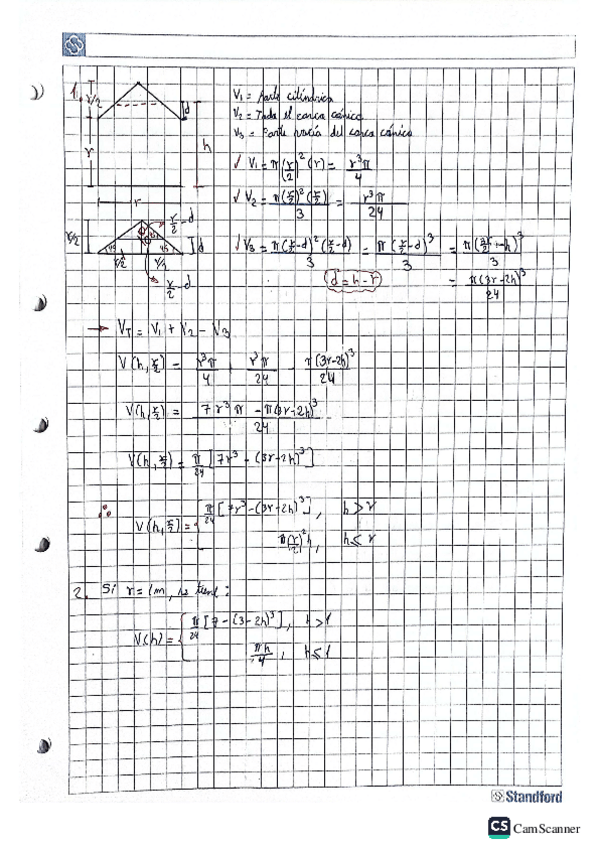 1)
1.
r/2
d
r
h
r
V₁ = Parte cilíndrica
V₂ = Toda el carca cónica
V₃ = Parte vacía del carca cónico
✓ V₁ = π(r/2)²(r) = r³π/4
✓ V₂ = π(r/2)²(r/2)/3 = r³π/24
r/2 - d
r/2
45
45
d
r/2
r/2
r/2 - d
✓ V₃ = π(r/2-d)²(r/2-d)/3 = π(r/2-d)³/3 = π(3r/2-h)³/3
d = h - r
= π(3r-2h)³/24
→ V_T = V₁ + V₂ - V₃
V(h,r/2) = r³π/4 + r³π/24 - π(3r-2h)³/24
V(h,r/2) = 7r³π - π(3r-2h)³/24
V(h,r/2) = π/24 [7r³ - (3r-2h)³]
∴
V(h,r/2) = { π/24 [7r³-(3r-2h)³], h > r
π(r/2)²h, h ≤ r
2. Si r = 1m, se tiene:
V(h) = { π/24 [7-(3-2h)³], h > 1
πh/4, h ≤ 1
Standford
CS CamScanner